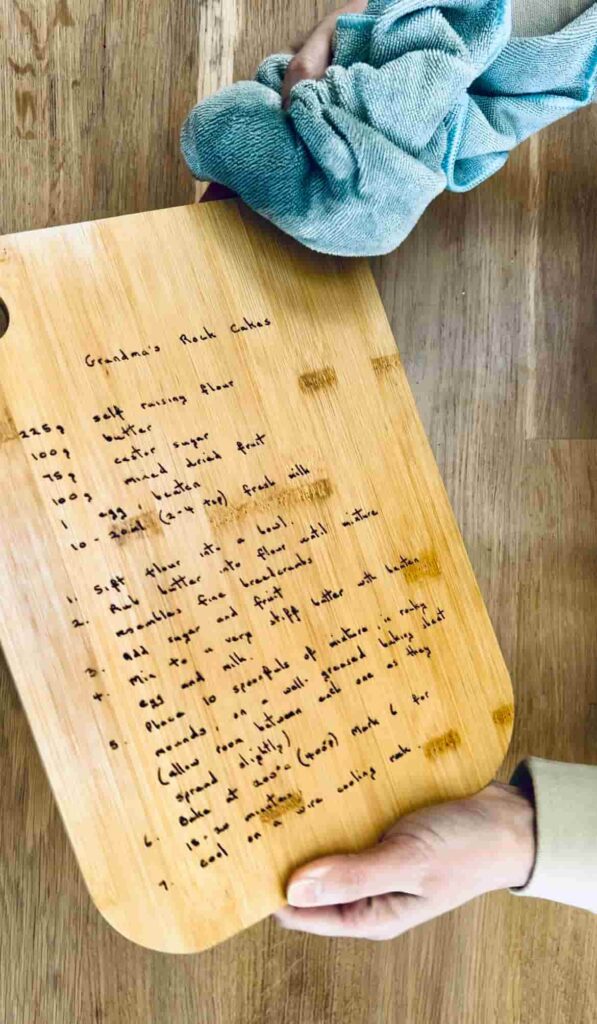 Grandma's Rock Cakes
225g self raising flour
100g butter
75g caster sugar
100g mixed dried fruit
1 egg, beaten
10-20ml (2-4 tsp) fresh milk
1. Sift flour into a bowl.
2. Rub butter into flour until mixture
resembles fine breadcrumbs
3. Add sugar and fruit
4. Mix to a very stiff batter with beaten
egg and milk.
5. Place 10 spoonfuls of mixture, in rocky
mounds, on a well greased baking sheet
(allow room between each one as they
spread slightly)
6. Bake at 200°C (400°F) Mark 6 for
15-20 minutes
7. Cool on a wire cooling rack.